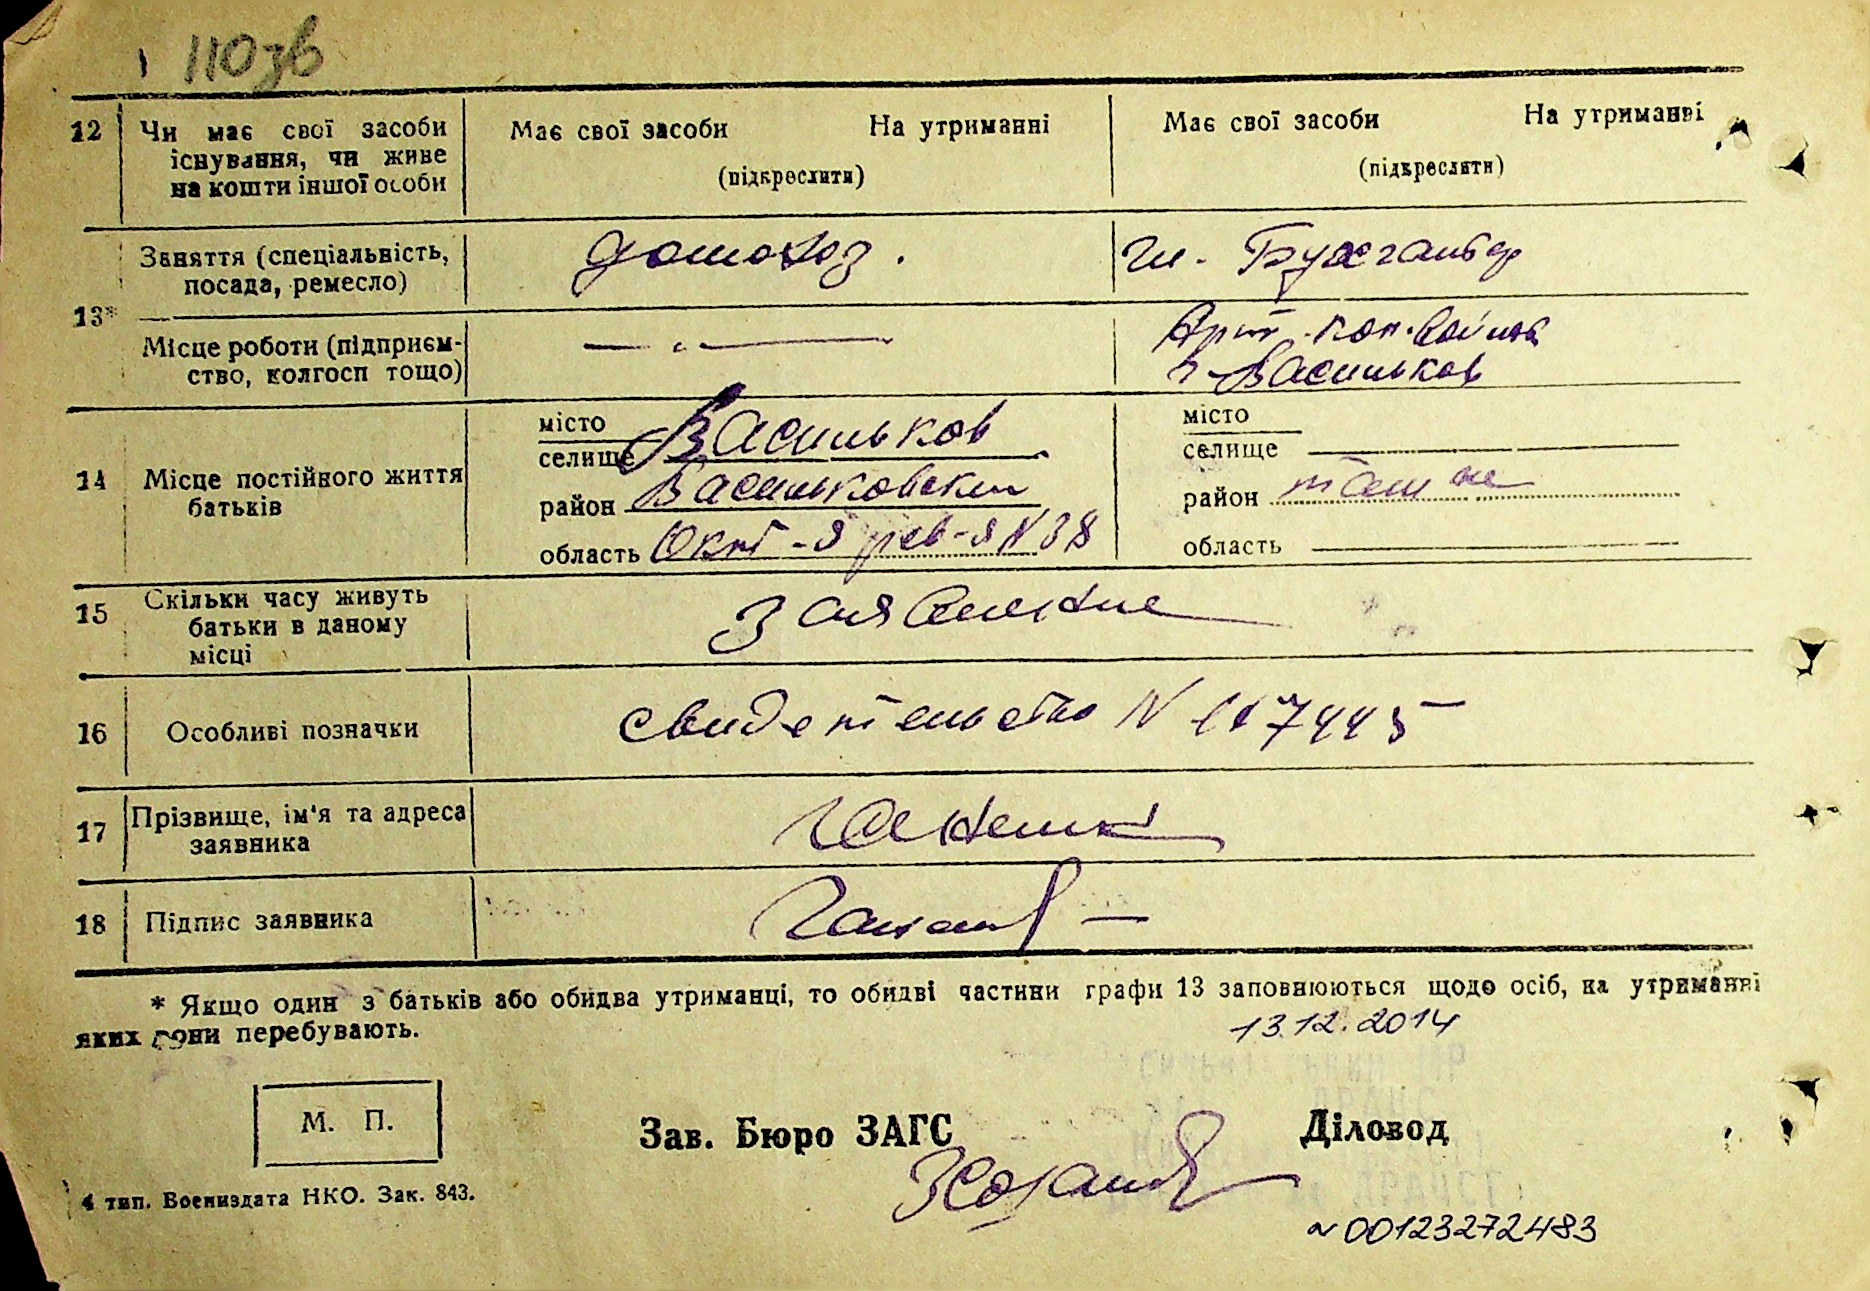 110зв
12 Чи має свої засоби існування, чи живе на кошти іншої особи
Має свої засоби На утриманні
(підкреслити)
Має свої засоби На утриманні
(підкреслити)
13*
Заняття (спеціальність,
посада, ремесло)
домохоз.
гл. Бухгалтер
Місце роботи (підприєм-
ство, колгосп тощо)
— " —
Арт. 
г. Васильков
14 Місце постійного життя
батьків
місто
селище Васильков
район Васильковский
область Окт-я рев-я N 38
місто
селище
район там же
область
15 Скільки часу живуть
батьки в даному
місці
16 Особливі позначки
свидетельство N 117445
17 Прізвище, ім'я та адреса
заявника
18 Підпис заявника
* Якщо один з батьків або обидва утриманці, то обидві частини графи 13 заповнюються щодо осіб, на утриманні
яких вони перебувають.
13.12.2014
М. П.
Зав. Бюро ЗАГС
Діловод
4 тип. Воениздата НКО. Зак. 843.
N 00123272483